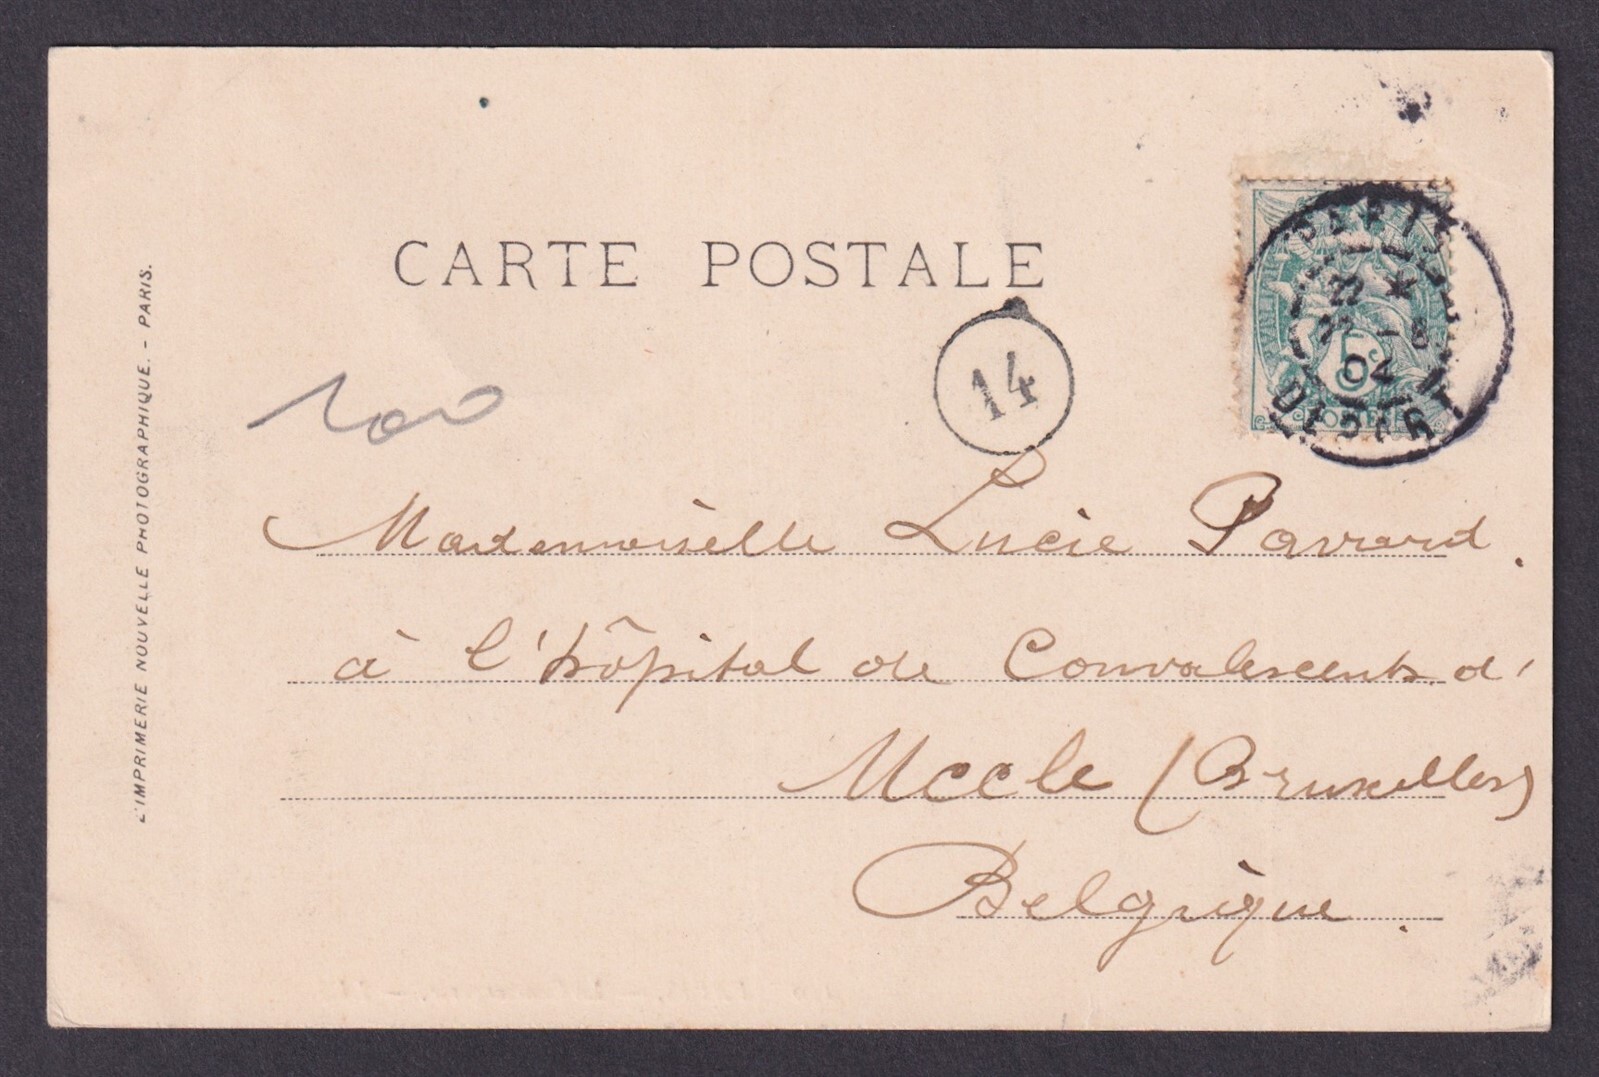 CARTE POSTALE
14
5c
04
DEPART
100
Mademoiselle Lucie Pavard.
à l'hôpital de Convalescents d'
Uccle (Bruxelles)
Belgique.
L'IMPRIMERIE NOUVELLE PHOTOGRAPHIQUE. - PARIS.